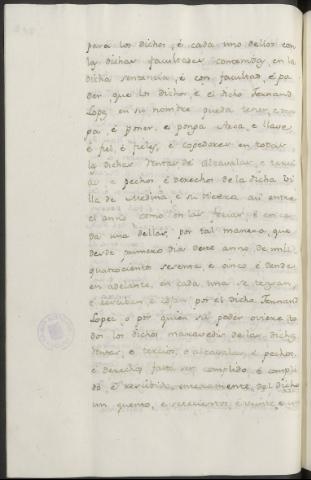 para los dichos, é cada uno dellos con
las dichas facultades contenidas en la
dicha sentencia, é con facultad, é po
der, que los dichos, é el dicho Fernand
Lopez en su nombre pueda tener, é
pa, é poner, é ponga Arca, é llaves,
é fiel, é fieles, é cojedores en todas
las dichas Rentas de Alcavalas, é tercias
é pechos é derechos de la dicha Vi
lla de Medina, é su tierra asi entre
el año, como en las ferias é en ca
da una dellas, por tal manera, que
desde primero dia deste anno de mil
quatrocientos sesenta, é cinco, é dende
en adelante, en cada una se
é reciban, é cojan por el dicho Fernand
Lopez, o por quien su poder oviere to
dos los dichos maravedis de las dichas
Rentas, é tercias, é alcavalas, é pechos,
é derechos fasta ser complido, é compli
do, é rescibido enteramente del dicho
un quento, é setecientos, é veinte, é